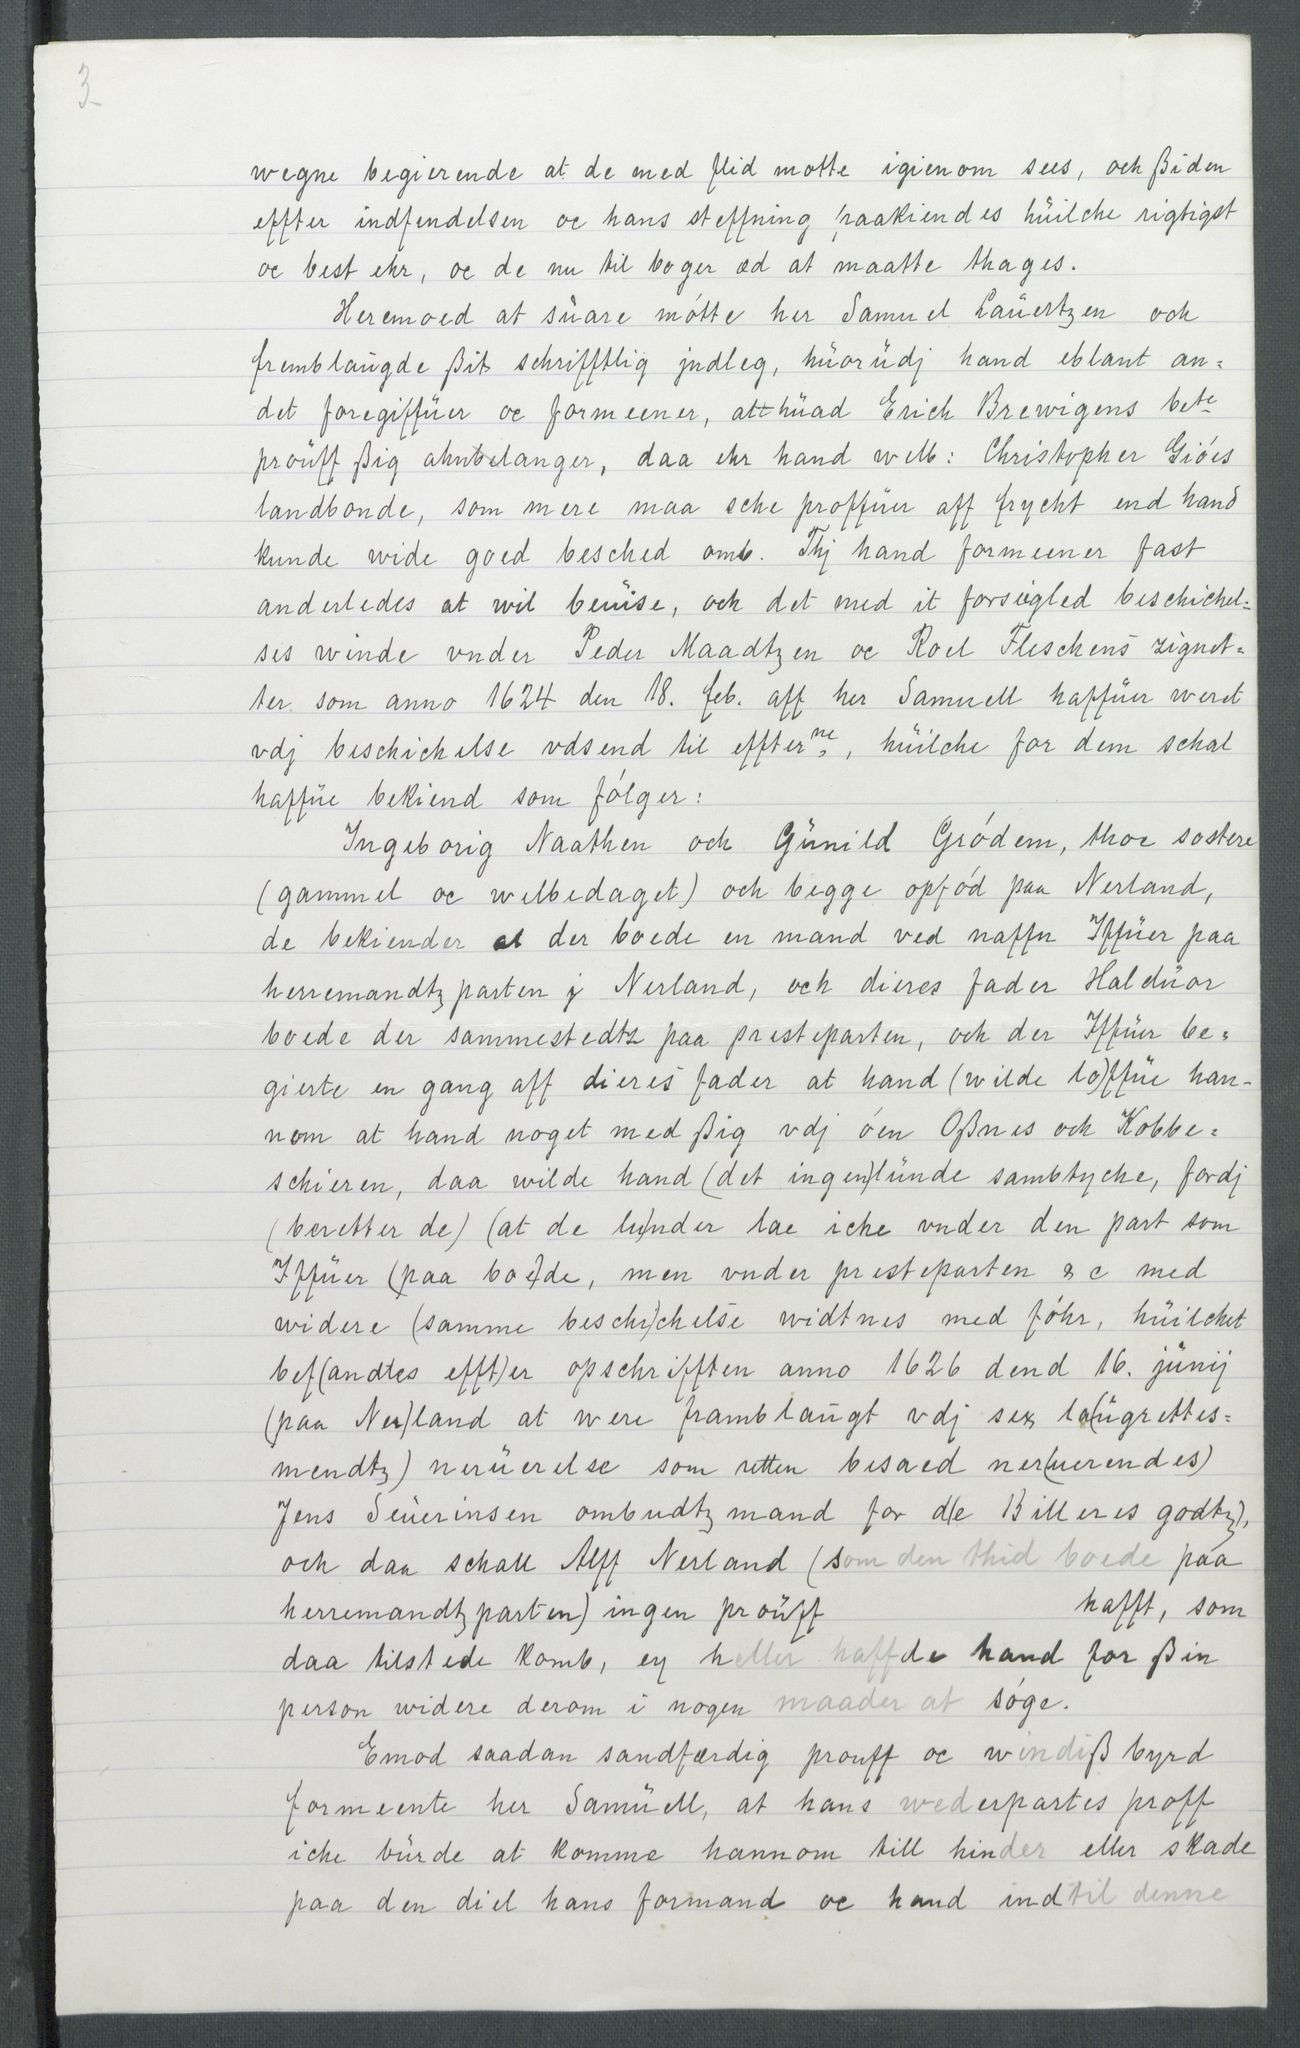 3
wegne begierende at de med flid motte igienom sees, och ßiden
effter indfendelsen oc hans steffning paakiendes hüilche rigtigst
oc best ehr, oc de nu til boger æd at maatte thages.
Heremoed at süare mótte her Samuel Laüertzen och
fremblaügde ßit schrifftlig jndleg, hüorüdj hand eblant an=
det foregiffüer oc formeener, att hüad Erich Brewigens bete
proüff ßig ahnbelanger, daa ehr hand welb: Christopher Gióes
landbonde, som mere maa sche proffüer aff frycht end hand
kunde wide goed besched omb. Thj hand formeener fast
anderledes at wil beüise, och det med it forseigled beschichel=
ses winde vnder Peder Maadtzen oc Roel Fleschens zignet=
ter som anno 1624 den 18. feb. aff her Samuell haffüer weret
vdj beschichelse vdsend til effterne, hüilche for dem schal
haffüe bekiend som fólger:
Ingeborig Naathen och Günild Gródem, thoe sostere
(gammel oc welbedaget) och begge opfód paa Nerland,
de bekiender at der boede en mand ved naffn Iffüer paa
herremandtzparten j Nerland, och dieres fader Haldüor
boede der sammestedtz paa presteparten, och der Iffüer be=
gierte en gang aff dieres fader at hand (wilde lo)ffüe han-
nom at hand noget med ßig vdj óen Oßnes och Kobbe=
schieren, daa wilde hand (det ingen)lünde sambtycke, fordj
(beretter de) (at de lu)nder lae icke vnder den part som
Iffüer (paa boe)de, men vnder presteparten &c med
widere (samme beschi)chelse widtnes med fóhr, hüilchet
bef(andtes efft)er opschrifften anno 1626 dend 16. jünij
(paa Ner)land at were framblaügt vdj sex la(ügrettes=
mendtz) nerüerelse som retten besaed ner(uerendes)
Jens Seüerinsen ombudtzmand for d(e Billeres godtz),
och daa schall Alff Nerland (som den thid boede paa
herremandtzparten) ingen proüff hafft, som
daa tilstede komb, ey heller haffde hand for ßin
person widere derom i nogen maader at sóge.
Emod saadan sandfærdig prouff oc windiß byrd
formeente her Samüell, at hans wederpartes proff
icke bürde at komme hannom till hinder eller skade
paa den diel hans formand oc hand indtil denne